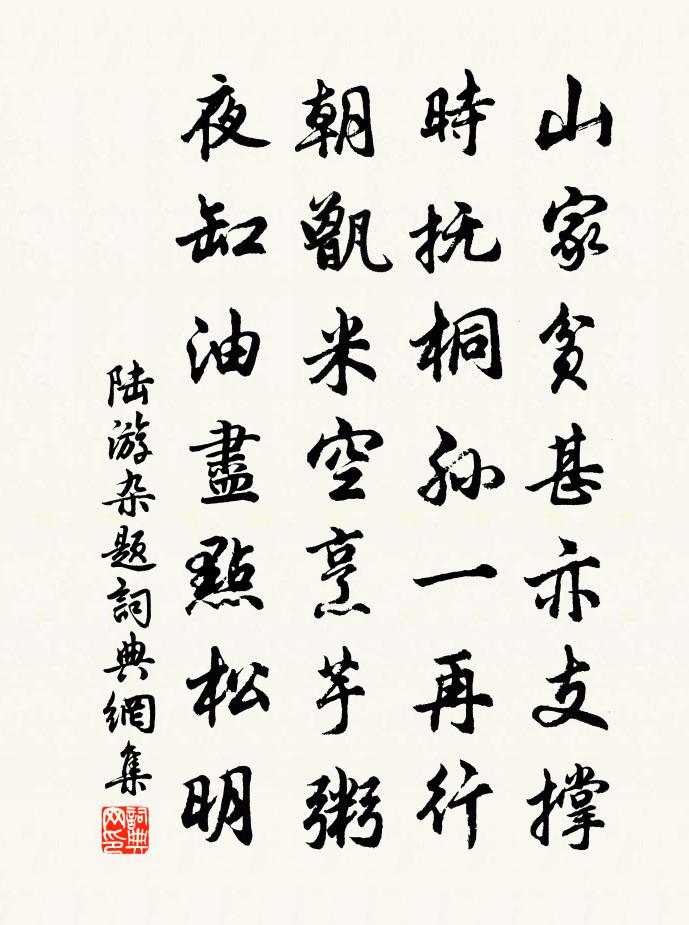 山家貧甚亦支撐
時抚桐孙一再行
朝甑米空烹芋粥
夜缸油盡點松明
陆游杂题詞典網集
詞典网印